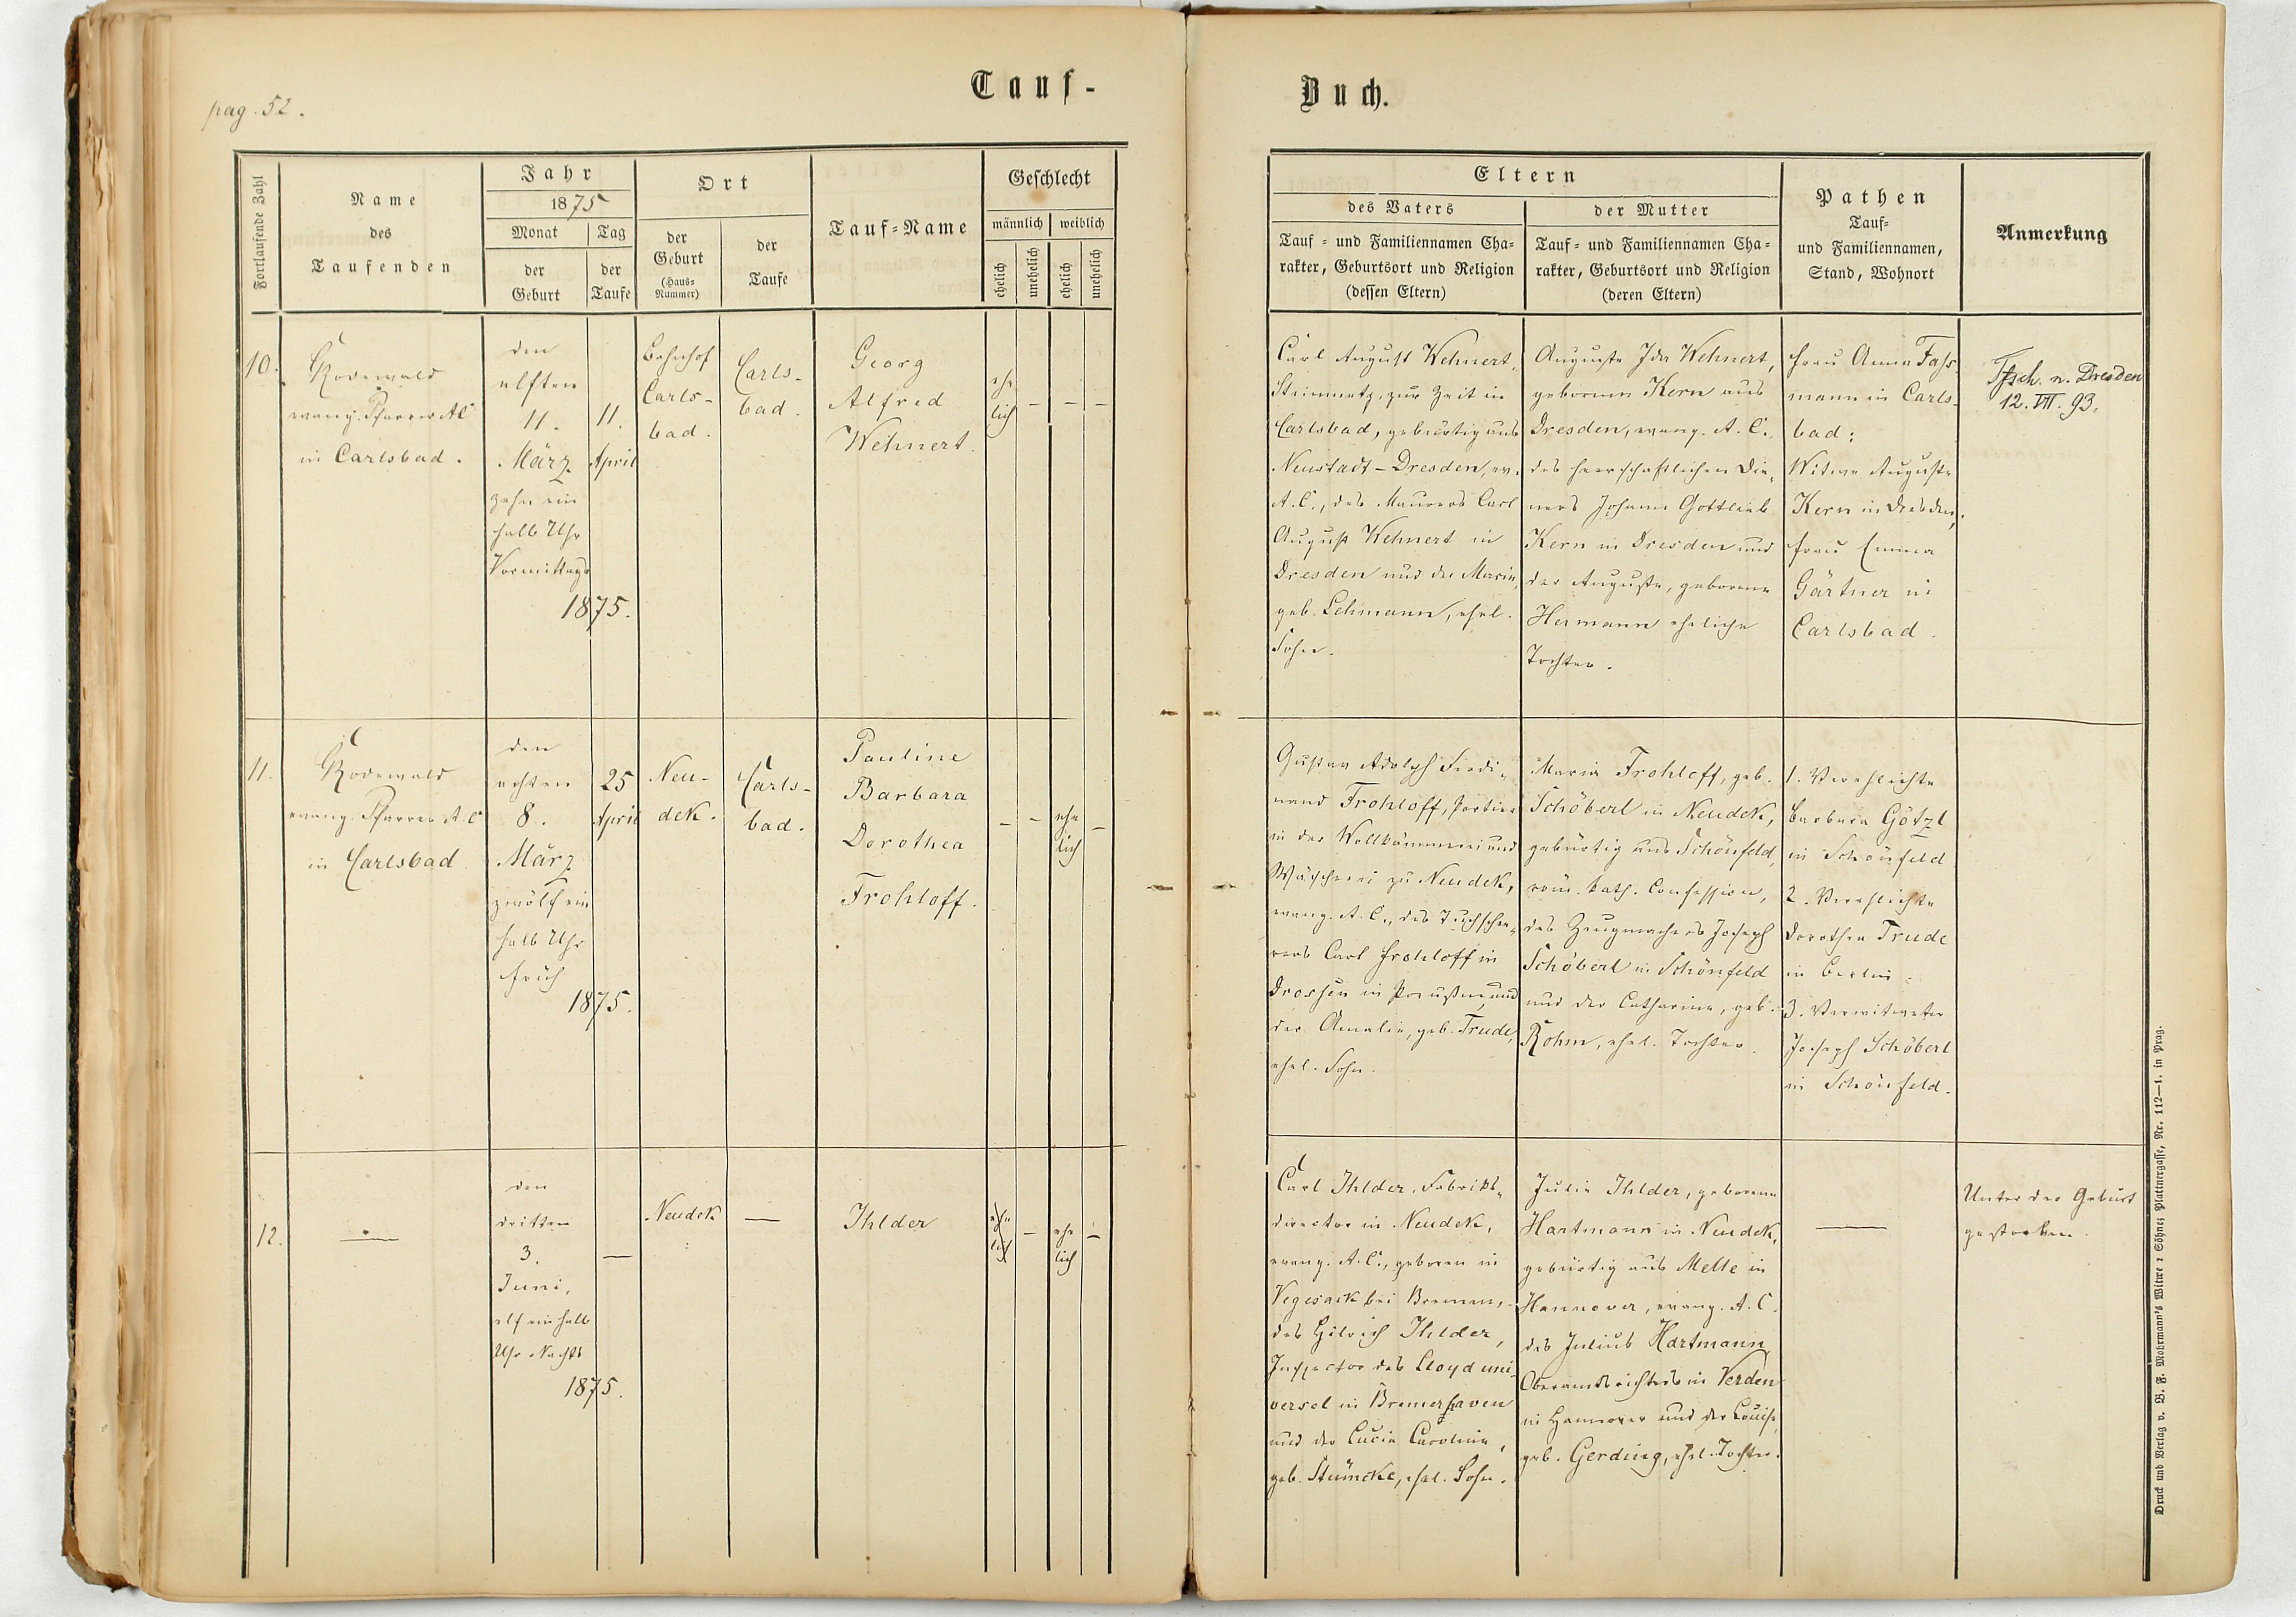 pag. 52.
Tauf-
Buch.
Fortlaufende Zahl
Name
des
Taufenden
Jahr
1875
Monat
der
Geburt
Tag
der
Taufe
Ort
der
Geburt
(Haus-
Nummer)
der
Taufe
Tauf-Name
Geschlecht
männlich
weiblich
ehelich
unehelich
ehelich
unehelich
Eltern
des Vaters
Tauf- und Familiennamen Cha-
rakter, Geburtsort und Religion
(dessen Eltern)
der Mutter
Tauf- und Familiennamen Cha-
rakter, Geburtsort und Religion
(deren Eltern)
Pathen
Tauf-
und Familiennamen,
Stand, Wohnort
Anmerkung
10.
Rodewald
evang. Pfarrer A C
in Carlsbad.
den
elften
11.
März
zehn ein
halb Uhr
Vormittags
1875.
11.
April
Bahnhof
Carls-
bad.
Carls-
bad.
Georg
Alfred
Wehnert.
ehe
lich
–
–
–
Carl August Wehnert,
Steinmetz, zur Zeit in
Carlsbad, gebürtig aus
Neustadt-Dresden, ev.
A.C., des Maurers Carl
August Wehnert in
Dresden und der Marie,
geb. Lehmann, ehel.
Sohn.
Auguste Ida Wehnert,
geborene Kern aus
Dresden, evang. A. C.,
des herrschaftlichen Die-
ners Johann Gottlieb
Kern in Dresden und
der Auguste, geborene
Hermann eheliche
Tochter.
Frau Anna Fass
mann in Carls-
bad;
Witwe Auguste
Kern in Dresden,
Frau Emma
Gärtner in
Carlsbad.
Tfsch. n. Dresden
12. VII. 93.
11.
Rodewald
evang. Pfarrer A. C
in Carlsbad.
den
achten
8.
März
zwölf ein
halb Uhr
früh
1875.
25
April
Neu-
dek.
Carls-
bad.
Pauline
Barbara
Dorothea
Frohloff.
–
–
ehe
lich
–
Gustav Adolph Ferdi-
nand Frohloff, Portier
in der Wollkämmerei und
Wäscherei zu Neudek,
evang. A. C., des Tuchschee-
rers Carl Frohloff in
Drossen in Preußen, und
der Amalie, geb. Trude,
ehel. Sohn.
Maria Frohloff, geb.
Schöberl in Neudek,
gebürtig aus Schönfeld,
röm. kath. Confession,
des Zeugmachers Joseph
Schöberl in Schönfeld
und der Catharina, geb.
Rohm, ehel. Tochter.
1. Verehlichte
Barbara Götzl
in Schönfeld
2. Verehlichte
Dorothea Trude
in Berlin;
3. Verwitweter
Joseph Schöberl
in Schönfeld.
12.
—
den
dritten
3.
Juni,
elf ein halb
Uhr Nachts
1875.
—
Neudek
—
Ihlder
ehe
lich
–
ehe
lich
–
Carl Ihlder, Fabriks-
director in Neudek,
evang. A. C., geboren in
Vegesack bei Bremen,
des Ihlder,
Inspector des Lloyd uni-
versel in Bremerhaven
und der Lucie Caroline,
geb. Stümcke, ehel. Sohn.
Julie Ihlder, geborene
Hartmann in Neudek,
gebürtig aus Melle in
Hannover, evang. A. C.
des Julius Hartmann,
Oberamtsrichters in Verden
in Hannover und der Louise,
geb. Gerding, ehel. Tochter.
—
Unter der Geburt
gestorben.
Druck und Verlag v. B. F. Mohrmann's Witwe & Söhne; Plattnergasse, Nr. 112—1. in Prag.